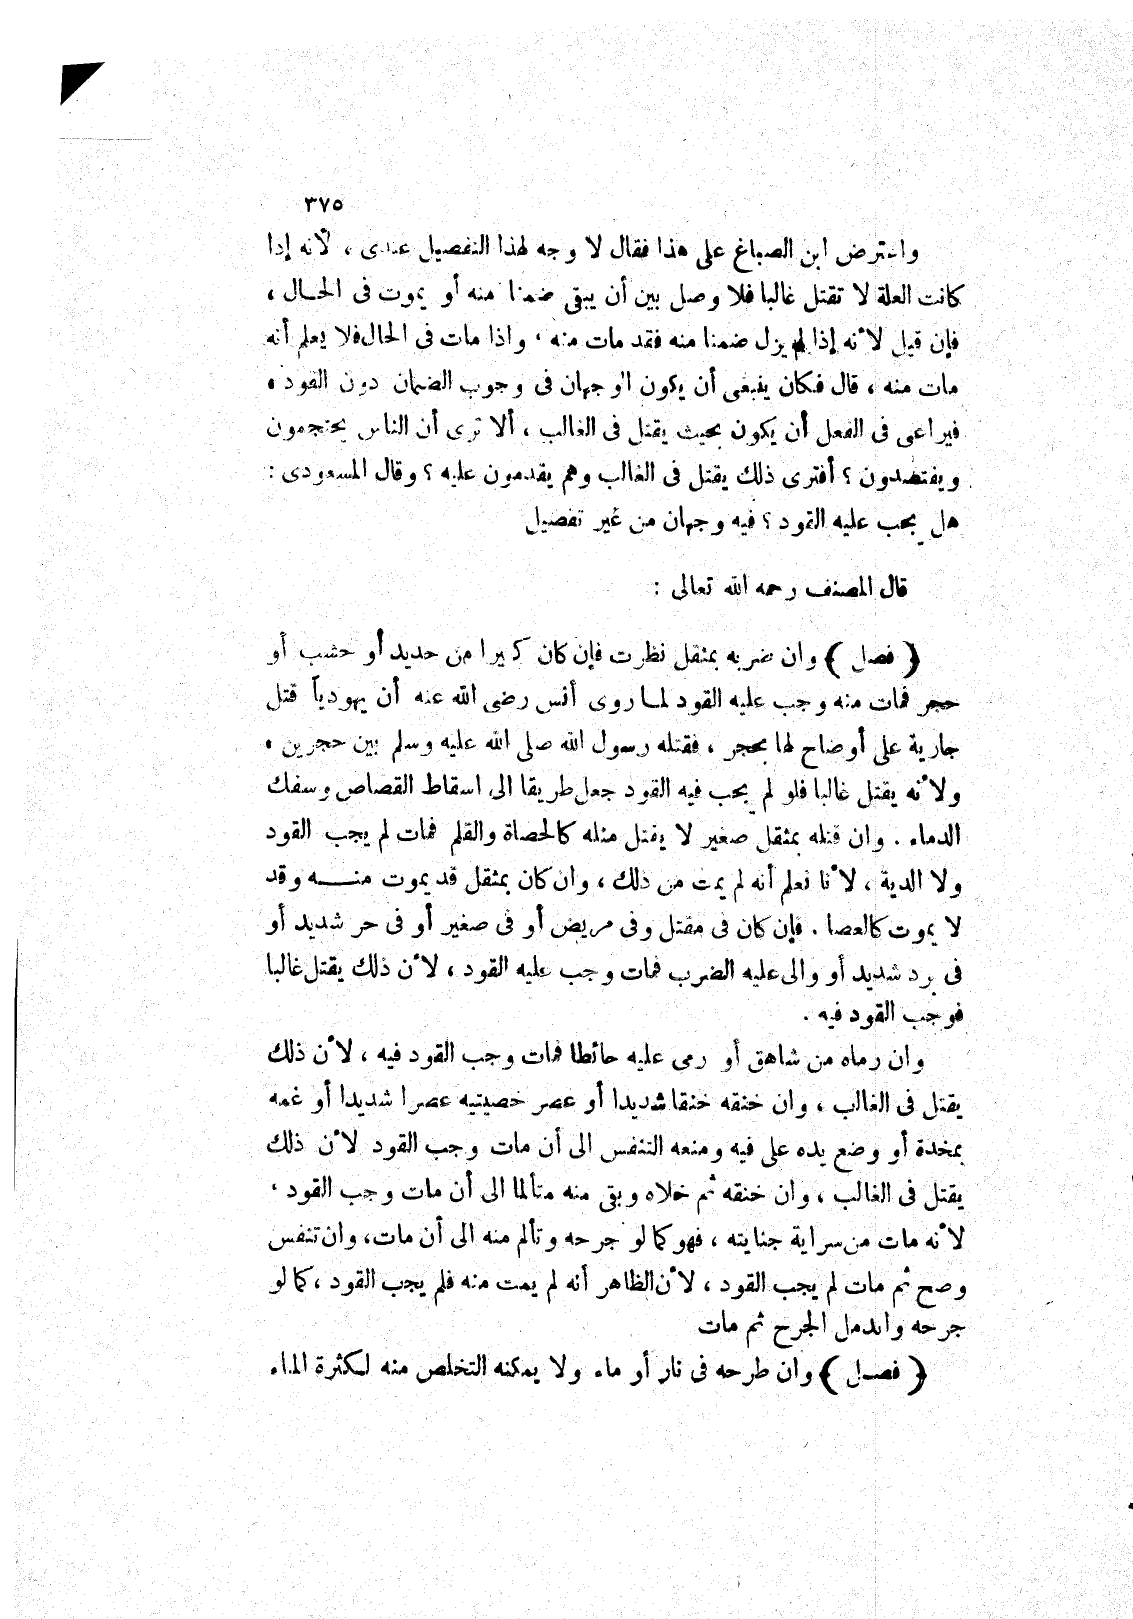 ٣٧٥
واعترض ابن الصباغ على هذا فقال لا وجه لهذا التفصيل عندى ، لأنه إذا
كانت العلة لا تقتل غالبا فلا وصل بين أن يبقى ضمنا منه أو يموت فى الحال ،
فإن قيل لأنه إذا لم يزل ضمنا منه فقد مات منه ، واذا مات فى الحال فلا يعلم أنه
مات منه ، قال فكان ينبغى أن يكون الوجهان فى وجوب الضمان دون القود .
فيراعى فى الفعل أن يكون بحيث يقتل فى الغالب ، ألا ترى أن الناس يحتجمون
ويفتصدون ؟ أفترى ذلك يقتل فى الغالب وهم يقدمون عليه ؟ وقال المسعودى :
هل يجب عليه القود ؟ فيه وجهان من غير تفصيل
قال المصنف رحمه الله تعالى :
( فصل ) وان ضربه بمثقل نظرت فإن كان كبيرا من حديد أو خشب أو
حجر فمات منه وجب عليه القود لما روى أنس رضى الله عنه أن يهودياً قتل
جارية على أوضاح لها بحجر ، فقتله رسول الله صلى الله عليه وسلم بين حجرين .
ولأنه يقتل غالبا فلو لم يجب فيه القود جعل طريقا الى اسقاط القصاص وسفك
الدماء . وان قتله بمثقل صغير لا يقتل مثله كالحصاة والقلم فمات لم يجب القود
ولا الدية ، لأنا نعلم أنه لم يمت من ذلك ، وان كان بمثقل قد يموت منه وقد
لا يموت كالعصا . فإن كان فى مقتل وفى مريض أو فى صغير أو فى حر شديد أو
فى برد شديد أو والى عليه الضرب فمات وجب عليه القود ، لأن ذلك يقتل غالبا
فوجب القود فيه .
وان رماه من شاهق أو رمى عليه حائطا فمات وجب القود فيه ، لأن ذلك
يقتل فى الغالب ، وان خنقه خنقا شديدا أو عصر خصيتيه عصرا شديدا أو غمه
بمخدة أو وضع يده على فيه ومنعه التنفس الى أن مات وجب القود لأن ذلك
يقتل فى الغالب ، وان خنقه ثم خلاه وبقى منه متألما الى أن مات وجب القود ،
لأنه مات من سراية جنايته ، فهو كما لو جرحه وتألم منه الى أن مات ، وان تنفس
وصح ثم مات لم يجب القود ، لأن الظاهر أنه لم يمت منه فلم يجب القود ، كما لو
جرحه واندمل الجرح ثم مات
( فصل ) وان طرحه فى نار أو ماء ولا يمكنه التخلص منه لكثرة الماء